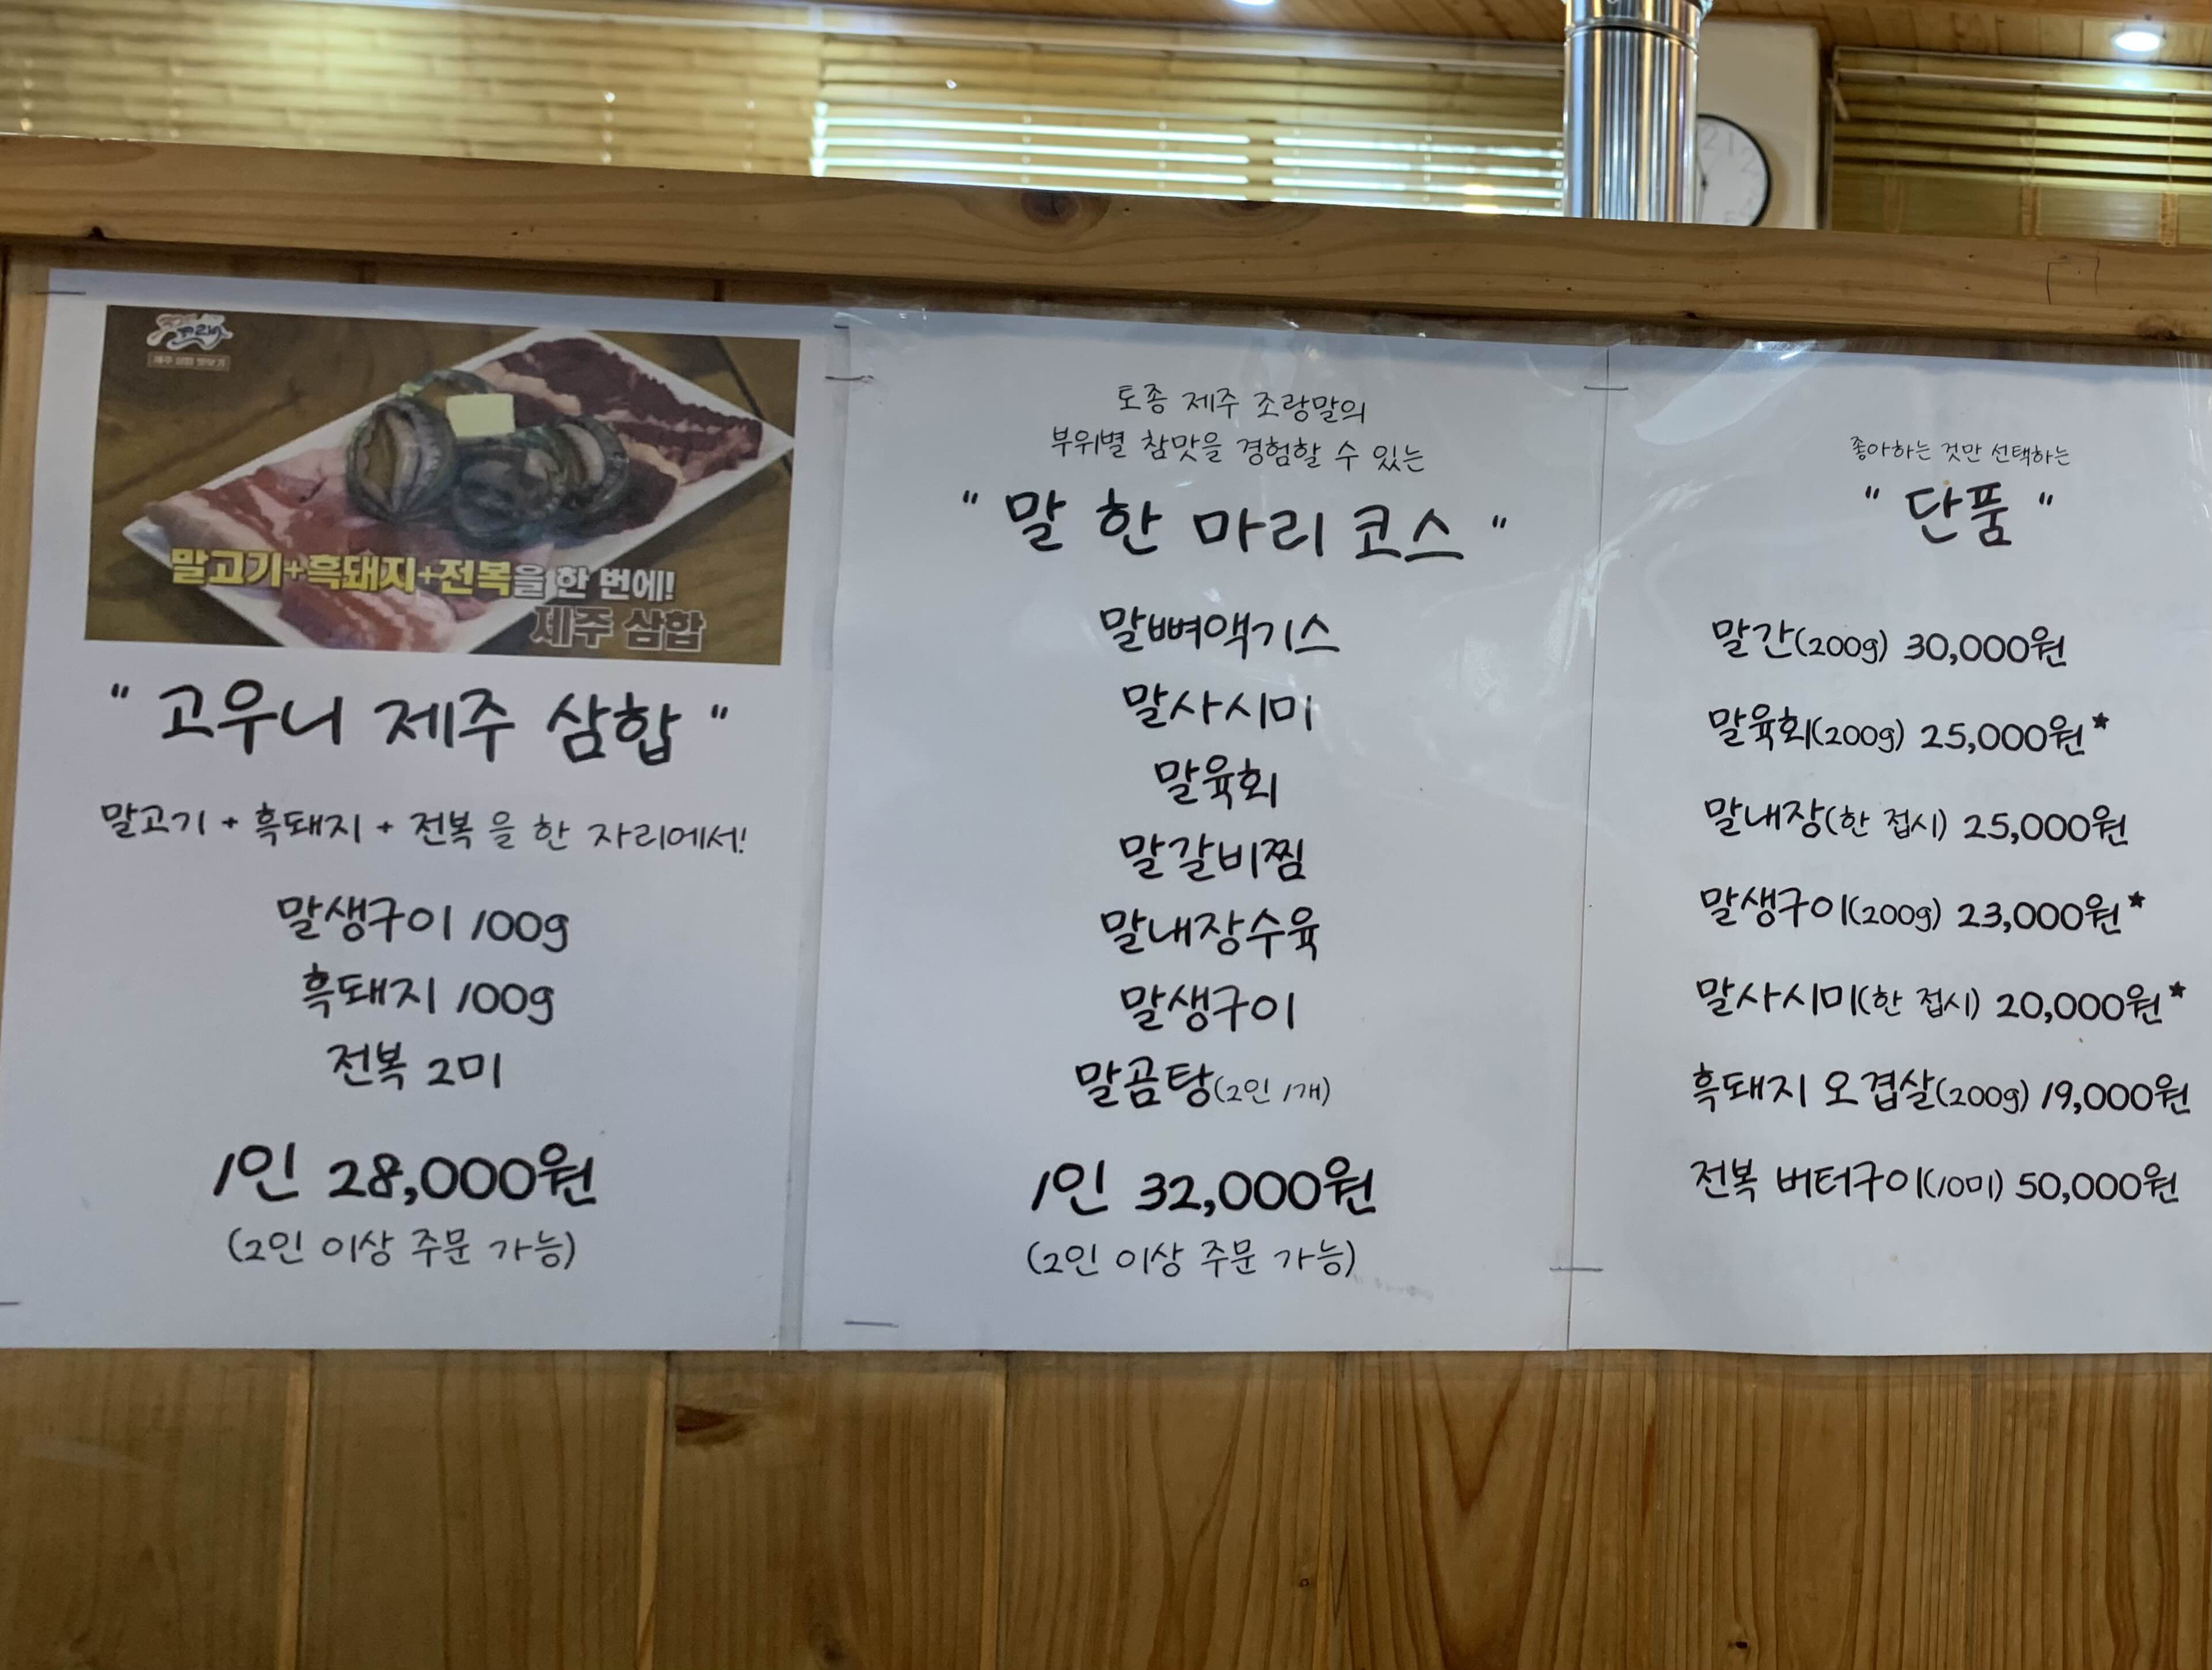 제주 삼합 맛보기
말고기+흑돼지+전복을 한 번에!
제주 삼합
" 고우니 제주 삼합 "
말고기 + 흑돼지 + 전복 을 한 자리에서!
말생구이 100g
흑돼지 100g
전복 2미
1인 28,000원
(2인 이상 주문 가능)
토종 제주 조랑말의
부위별 참맛을 경험할 수 있는
" 말 한 마리 코스 "
말뼈액기스
말사시미
말육회
말갈비찜
말내장수육
말생구이
말곰탕(2인 1개)
1인 32,000원
(2인 이상 주문 가능)
좋아하는 것만 선택하는
" 단품 "
말간(200g) 30,000원
말육회(200g) 25,000원★
말내장(한 접시) 25,000원
말생구이(200g) 23,000원★
말사시미(한 접시) 20,000원★
흑돼지 오겹살(200g) 19,000원
전복 버터구이(10미) 50,000원